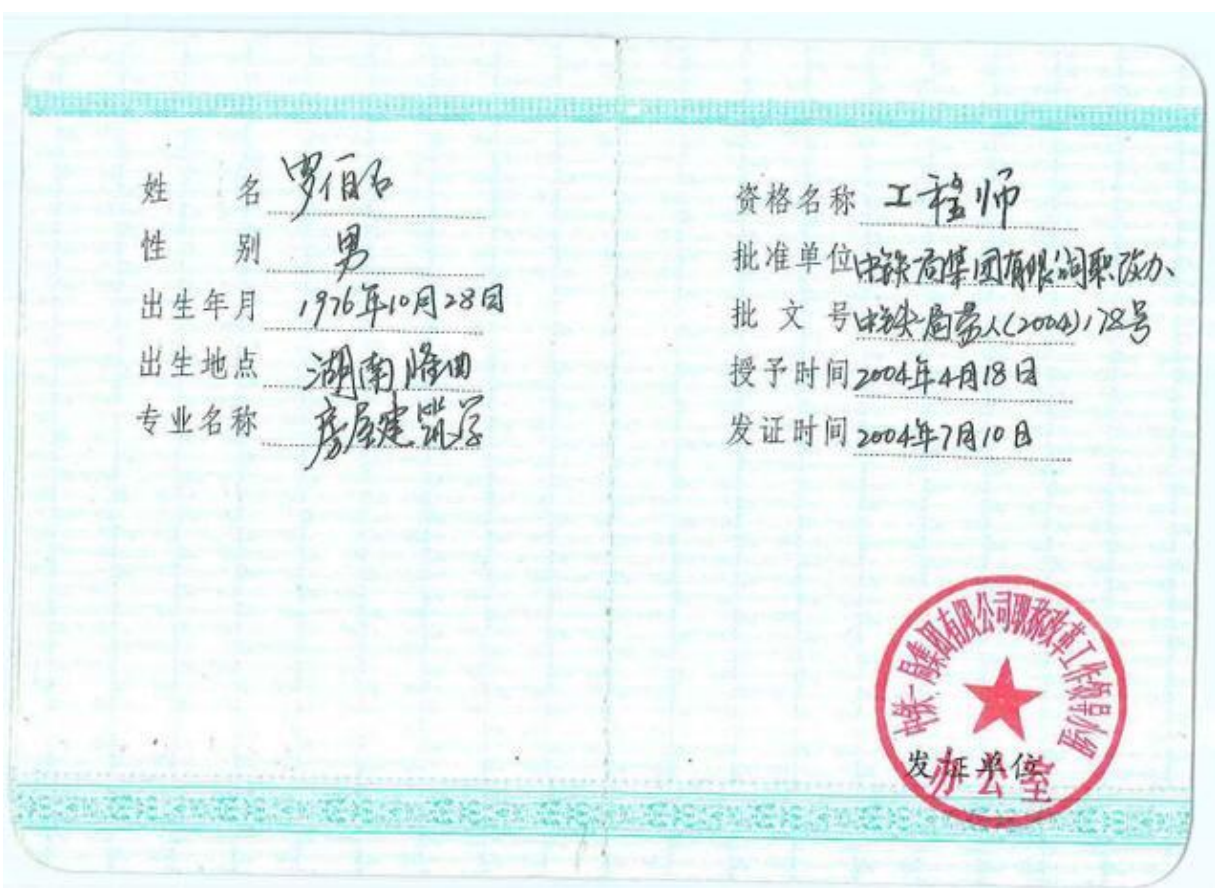 姓名 罗伯石
性别 男
出生年月 1976年10月28日
出生地点 湖南隆回
专业名称 房屋建筑学
资格名称 工程师
批准单位 中铁一局集团有限公司职改办
批文号 (2004)178号
授予时间 2004年4月18日
发证时间 2004年7月10日
中铁一局集团有限公司职称改革工作领导小组
办公室
发证单位